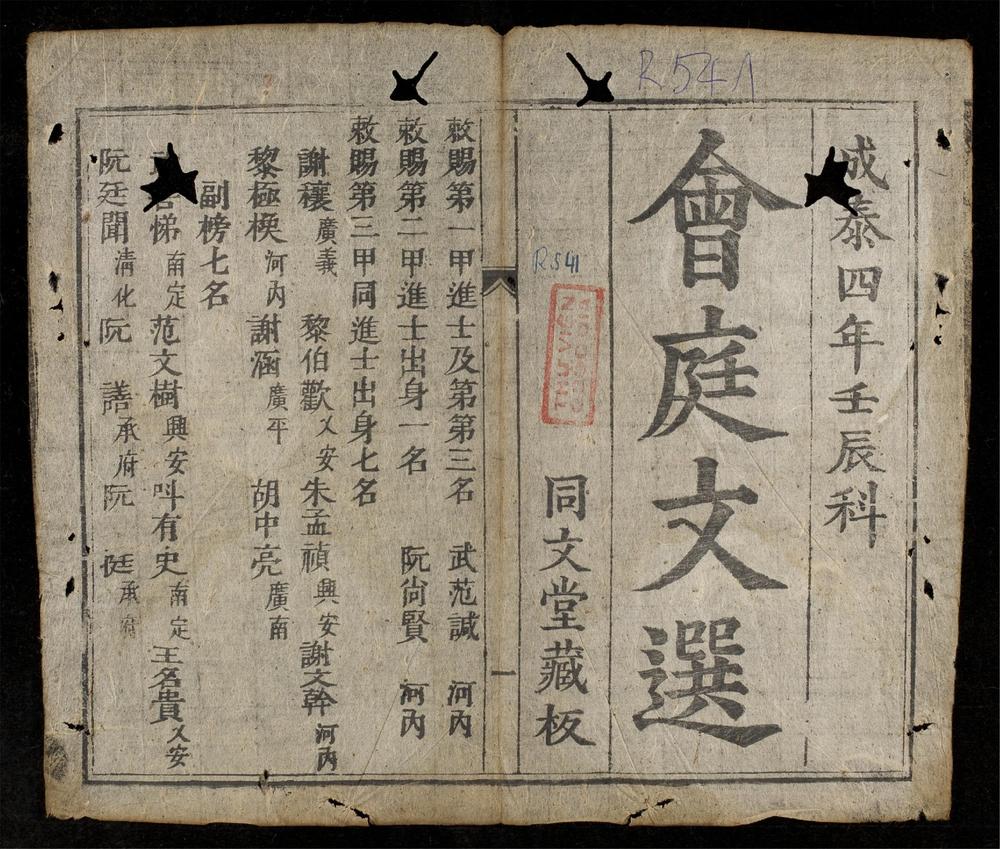 R541
成泰四年壬辰科
會庭文選
R.541
同文堂藏板
一
敕賜第一甲進士及第第三名 武范諴 河内
敕賜第二甲進士出身一名 阮尙賢 河内
敕賜第三甲同進士出身七名
謝穰 廣義 黎伯歡 乂安 朱孟禎 興安 謝文幹 河内
黎極㮋 河内 謝涵 廣平 胡中亮 廣南
副榜七名
悌 南定 范文樹 興安 呌有史 南定 王名貴 乂安
阮廷聞 清化 阮 譱 承府 阮 挺 承府